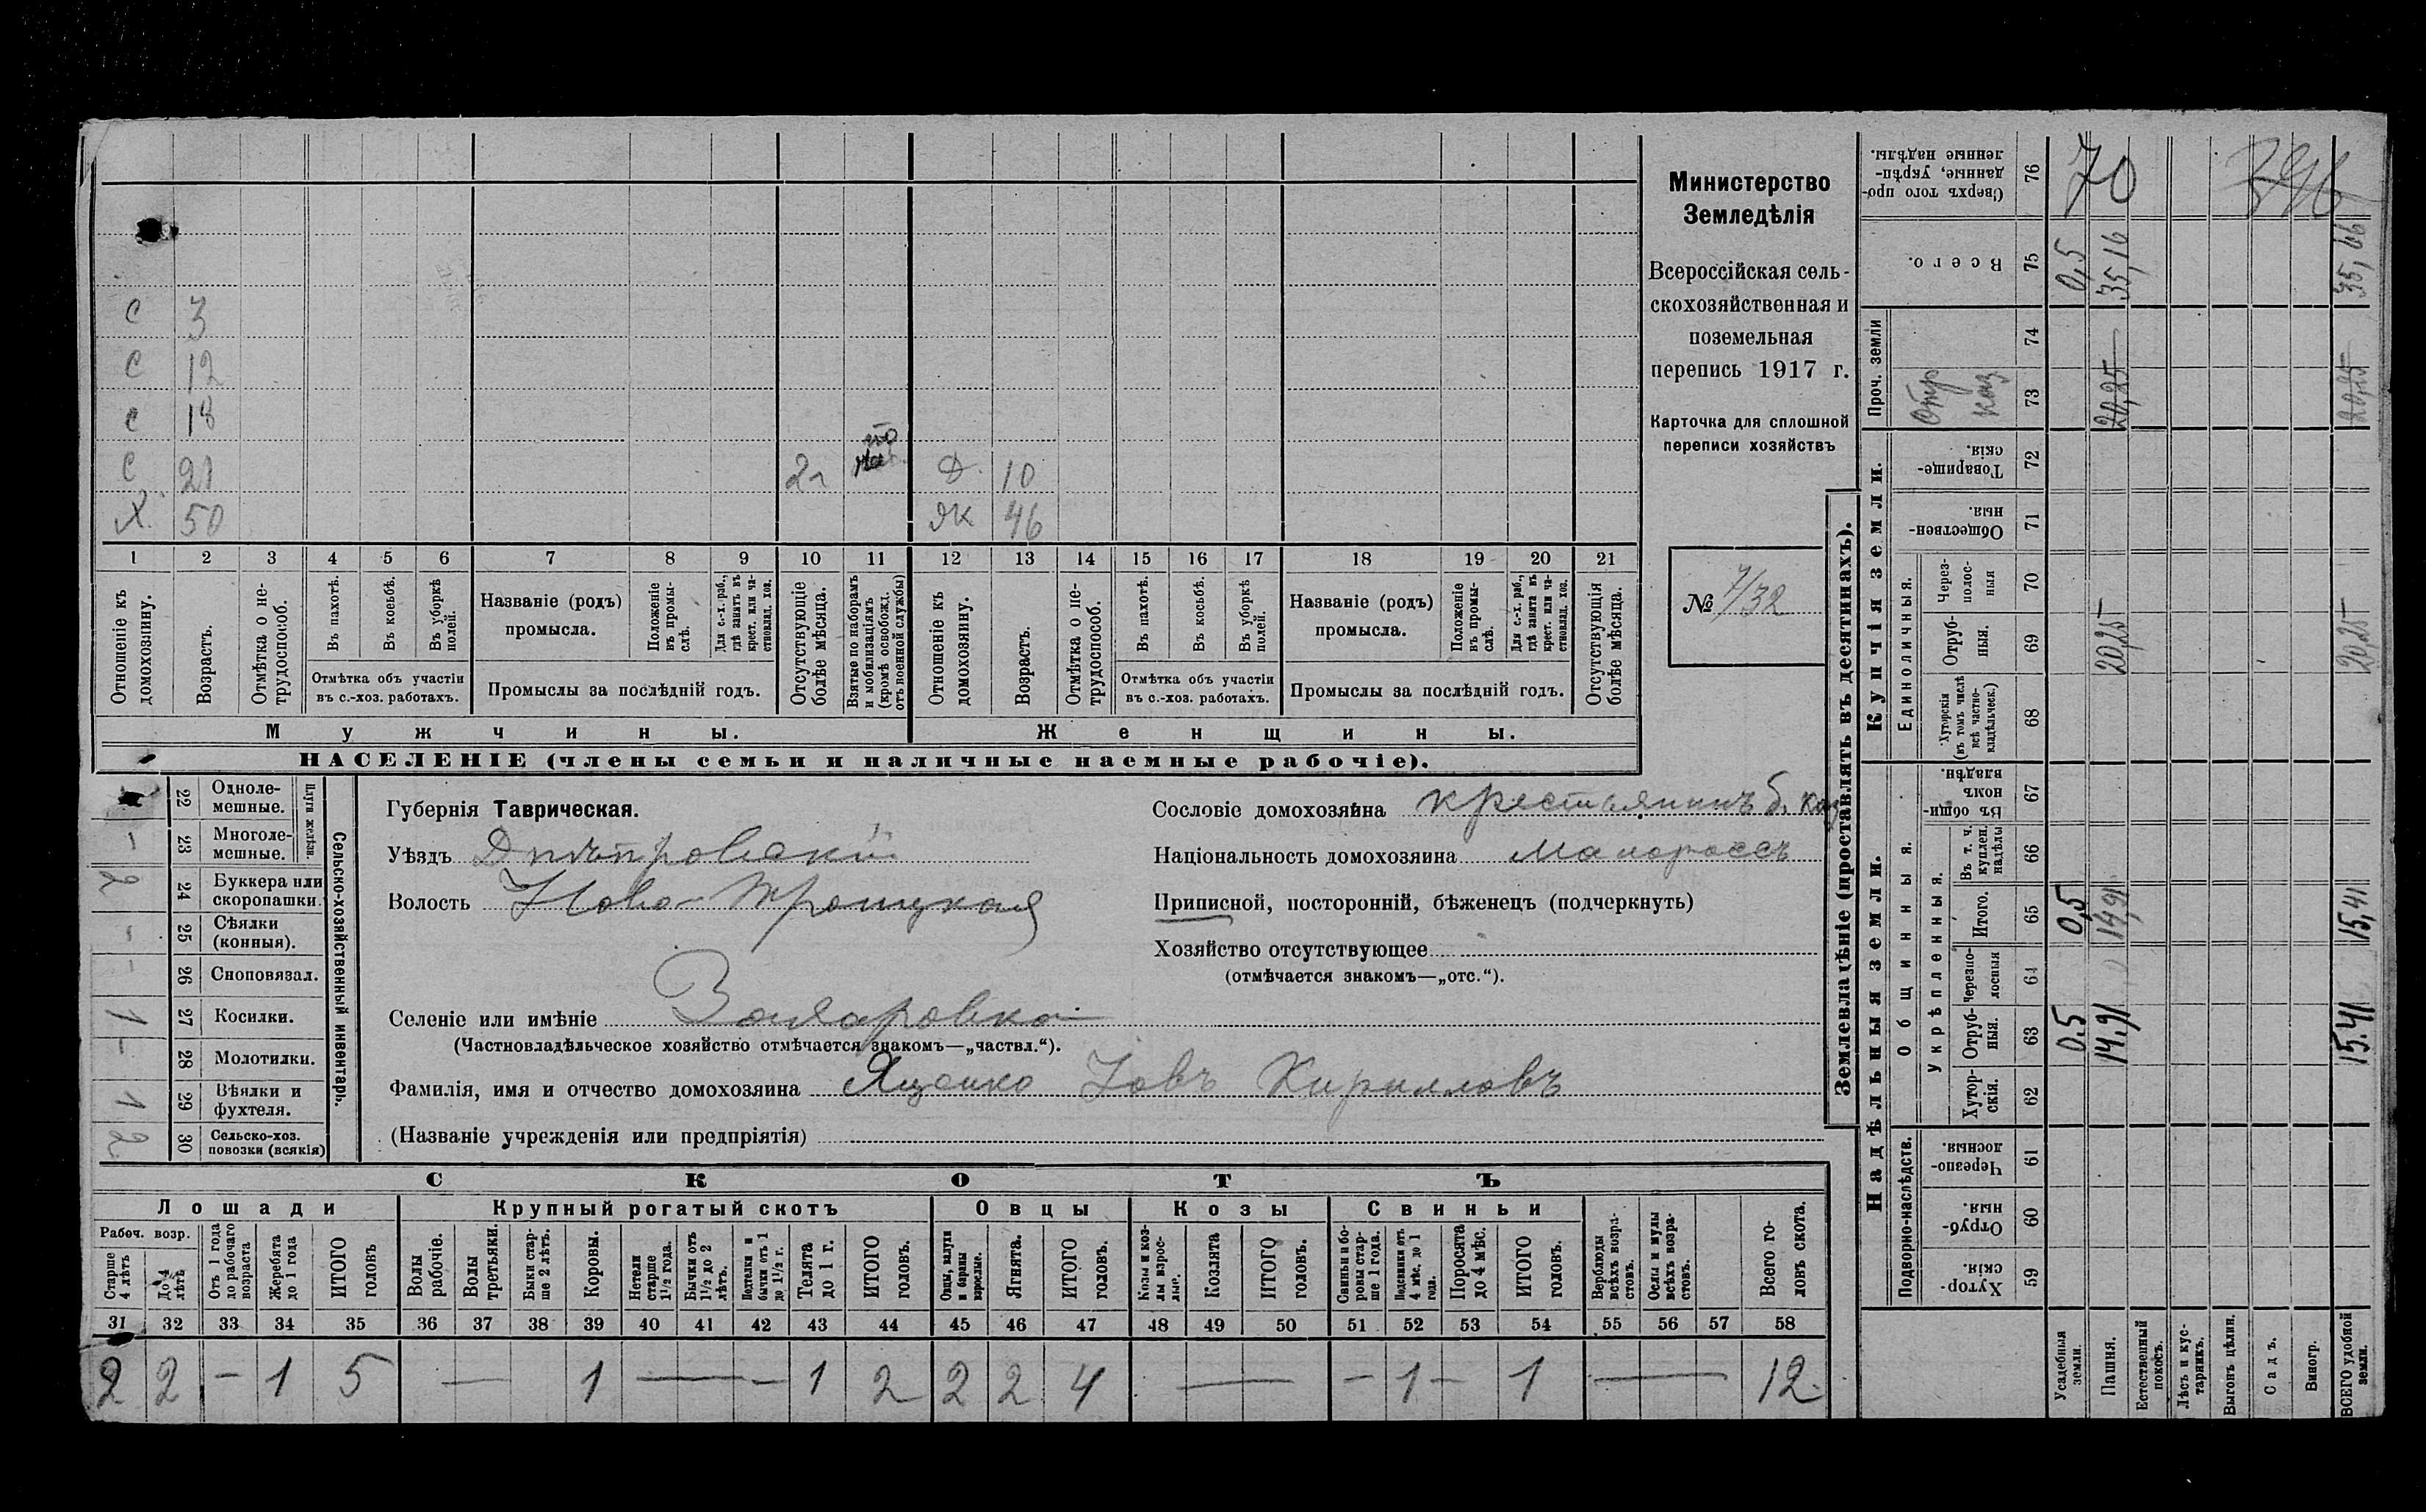 Министерство
Земледѣлія
Всероссійская сель-
скохозяйственная и
поземельная
перепись 1917 г.
Карточка для сплошной
переписи хозяйствъ
№ 7/32
С 3
С 12
С 18
С 21 2г Д. 10
Х. 50 ЯК 46
1 2 3 4 5 6 7 8 9 10 11 12 13 14 15 16 17 18 19 20 21
Отношеніе къ домохозяину.
Возрастъ.
Отмѣтка о не-трудоспособ.
Въ пахотѣ.
Въ косьбѣ.
Въ уборкѣ полей.
Отмѣтка объ участіи
въ с.-хоз. работахъ.
Названіе (родъ)
промысла.
Положеніе въ промы-слѣ.
Для с.-х. раб., гдѣ занятъ въ крест. или ча-стновлад. хоз.
Промыслы за послѣдній годъ.
Отсутствующіе болѣе мѣсяца.
Взятые по наборамъ и мобилизаціямъ (кромѣ освобожд. отъ военной службы)
Отношеніе къ домохозяину.
Возрастъ.
Отмѣтка о не-трудоспособ.
Въ пахотѣ.
Въ косьбѣ.
Въ уборкѣ полей.
Отмѣтка объ участіи
въ с.-хоз. работахъ.
Названіе (родъ)
промысла.
Положеніе въ промы-слѣ.
Для с.-х. раб., гдѣ занята въ крест. или ча-стновлад. хоз.
Промыслы за послѣдній годъ.
Отсутствующія болѣе мѣсяца.
Мужчины. Женщины.
НАСЕЛЕНІЕ (члены семьи и наличные наемные рабочіе).
Сельско-хозяйственный инвентарь.
Плуги желѣзн.
22 Одноле-мешные.
– 23 Многоле-мешные.
2 24 Буккера или скоропашки.
– 25 Сѣялки (конныя).
– 26 Сноповязал.
1 27 Косилки.
– 28 Молотилки.
1 29 Вѣялки и фухтеля.
2 30 Сельско-хоз. повозки (всякія)
Губернія Таврическая.
Уѣздъ Днѣпровскій
Волость Ново-Троицкая
Селеніе или имѣніе
(Частновладѣльческое хозяйство отмѣчается знакомъ—„частвл.“).
Фамилія, имя и отчество домохозяина Ященко Іовъ Кирилловъ
(Названіе учрежденія или предпріятія)
Сословіе домохозяина крестьянинъ б.
Національность домохозяина Малороссъ
Приписной, посторонній, бѣженецъ (подчеркнуть)
Хозяйство отсутствующее
(отмѣчается знакомъ—„отс.“).
СКОТЪ
Лошади Крупный рогатый скотъ Овцы Козы Свиньи
Рабоч. возр.
Старше 4 лѣтъ
До 4 лѣтъ
Отъ 1 года до рабочаго возраста
Жеребята до 1 года
ИТОГО головъ
Волы рабочіе.
Волы третьяки.
Быки стар-ше 2 лѣтъ.
Коровы.
Нетели старше 1½ года.
Бычки отъ 1½ до 2 лѣтъ.
Подтелки и бычки отъ 1 до 1½ г.
Телята до 1 г.
ИТОГО головъ.
Овцы, валухи и бараны взрослые.
Ягнята.
ИТОГО головъ.
Козы и коз-лы взрос-лые.
Козлята
ИТОГО головъ.
Свиньи и бо-ровы стар-ше 1 года.
Подсвинки отъ 4 мѣс. до 1 года.
Поросята до 4 мѣс.
ИТОГО головъ.
Верблюды всѣхъ возра-стовъ.
Ослы и мулы всѣхъ возра-стовъ.
Всего го-ловъ скота.
31 32 33 34 35 36 37 38 39 40 41 42 43 44 45 46 47 48 49 50 51 52 53 54 55 56 57 58
2 2 – 1 5 — 1 — – 1 2 2 2 4 — – 1 – 1 — 12
Землевладѣніе (проставлять въ десятинахъ).
Надѣльныя земли. Купчія земли. Проч. земли
Подворно-наслѣдств.
Общинныя.
Укрѣпленныя.
Единоличныя.
Хутор-скія. 59
Отруб-ныя. 60
Черезпо-лосныя. 61
Хутор-скія. 62
Отруб-ныя. 63
Черезпо-лосныя 64
Итого. 65
Въ т. ч. куплен. надѣлы 66
Въ общи-номъ владѣн. 67
Хуторскія (въ томъ числѣ всѣ частно-владѣльческ.) 68
Отруб-ныя. 69
Через-полос-ныя 70
Обществен-ныя. 71
Товарище-скія. 72
73
74
Всего. 75
Сверхъ того про-данные, укрѣп-ленные надѣлы. 76
Усадебныя земли. 0,5 0,5 0,5
Пашня. 14,91 14,91 20,25 20,25 35,16
Естественный покосъ.
Лѣсъ и кус-тарникъ.
Выгонъ цѣлин.
Садъ.
Виногр.
ВСЕГО удобной земли. 15,41 15,41 20,25 20,25 35,66
70
396